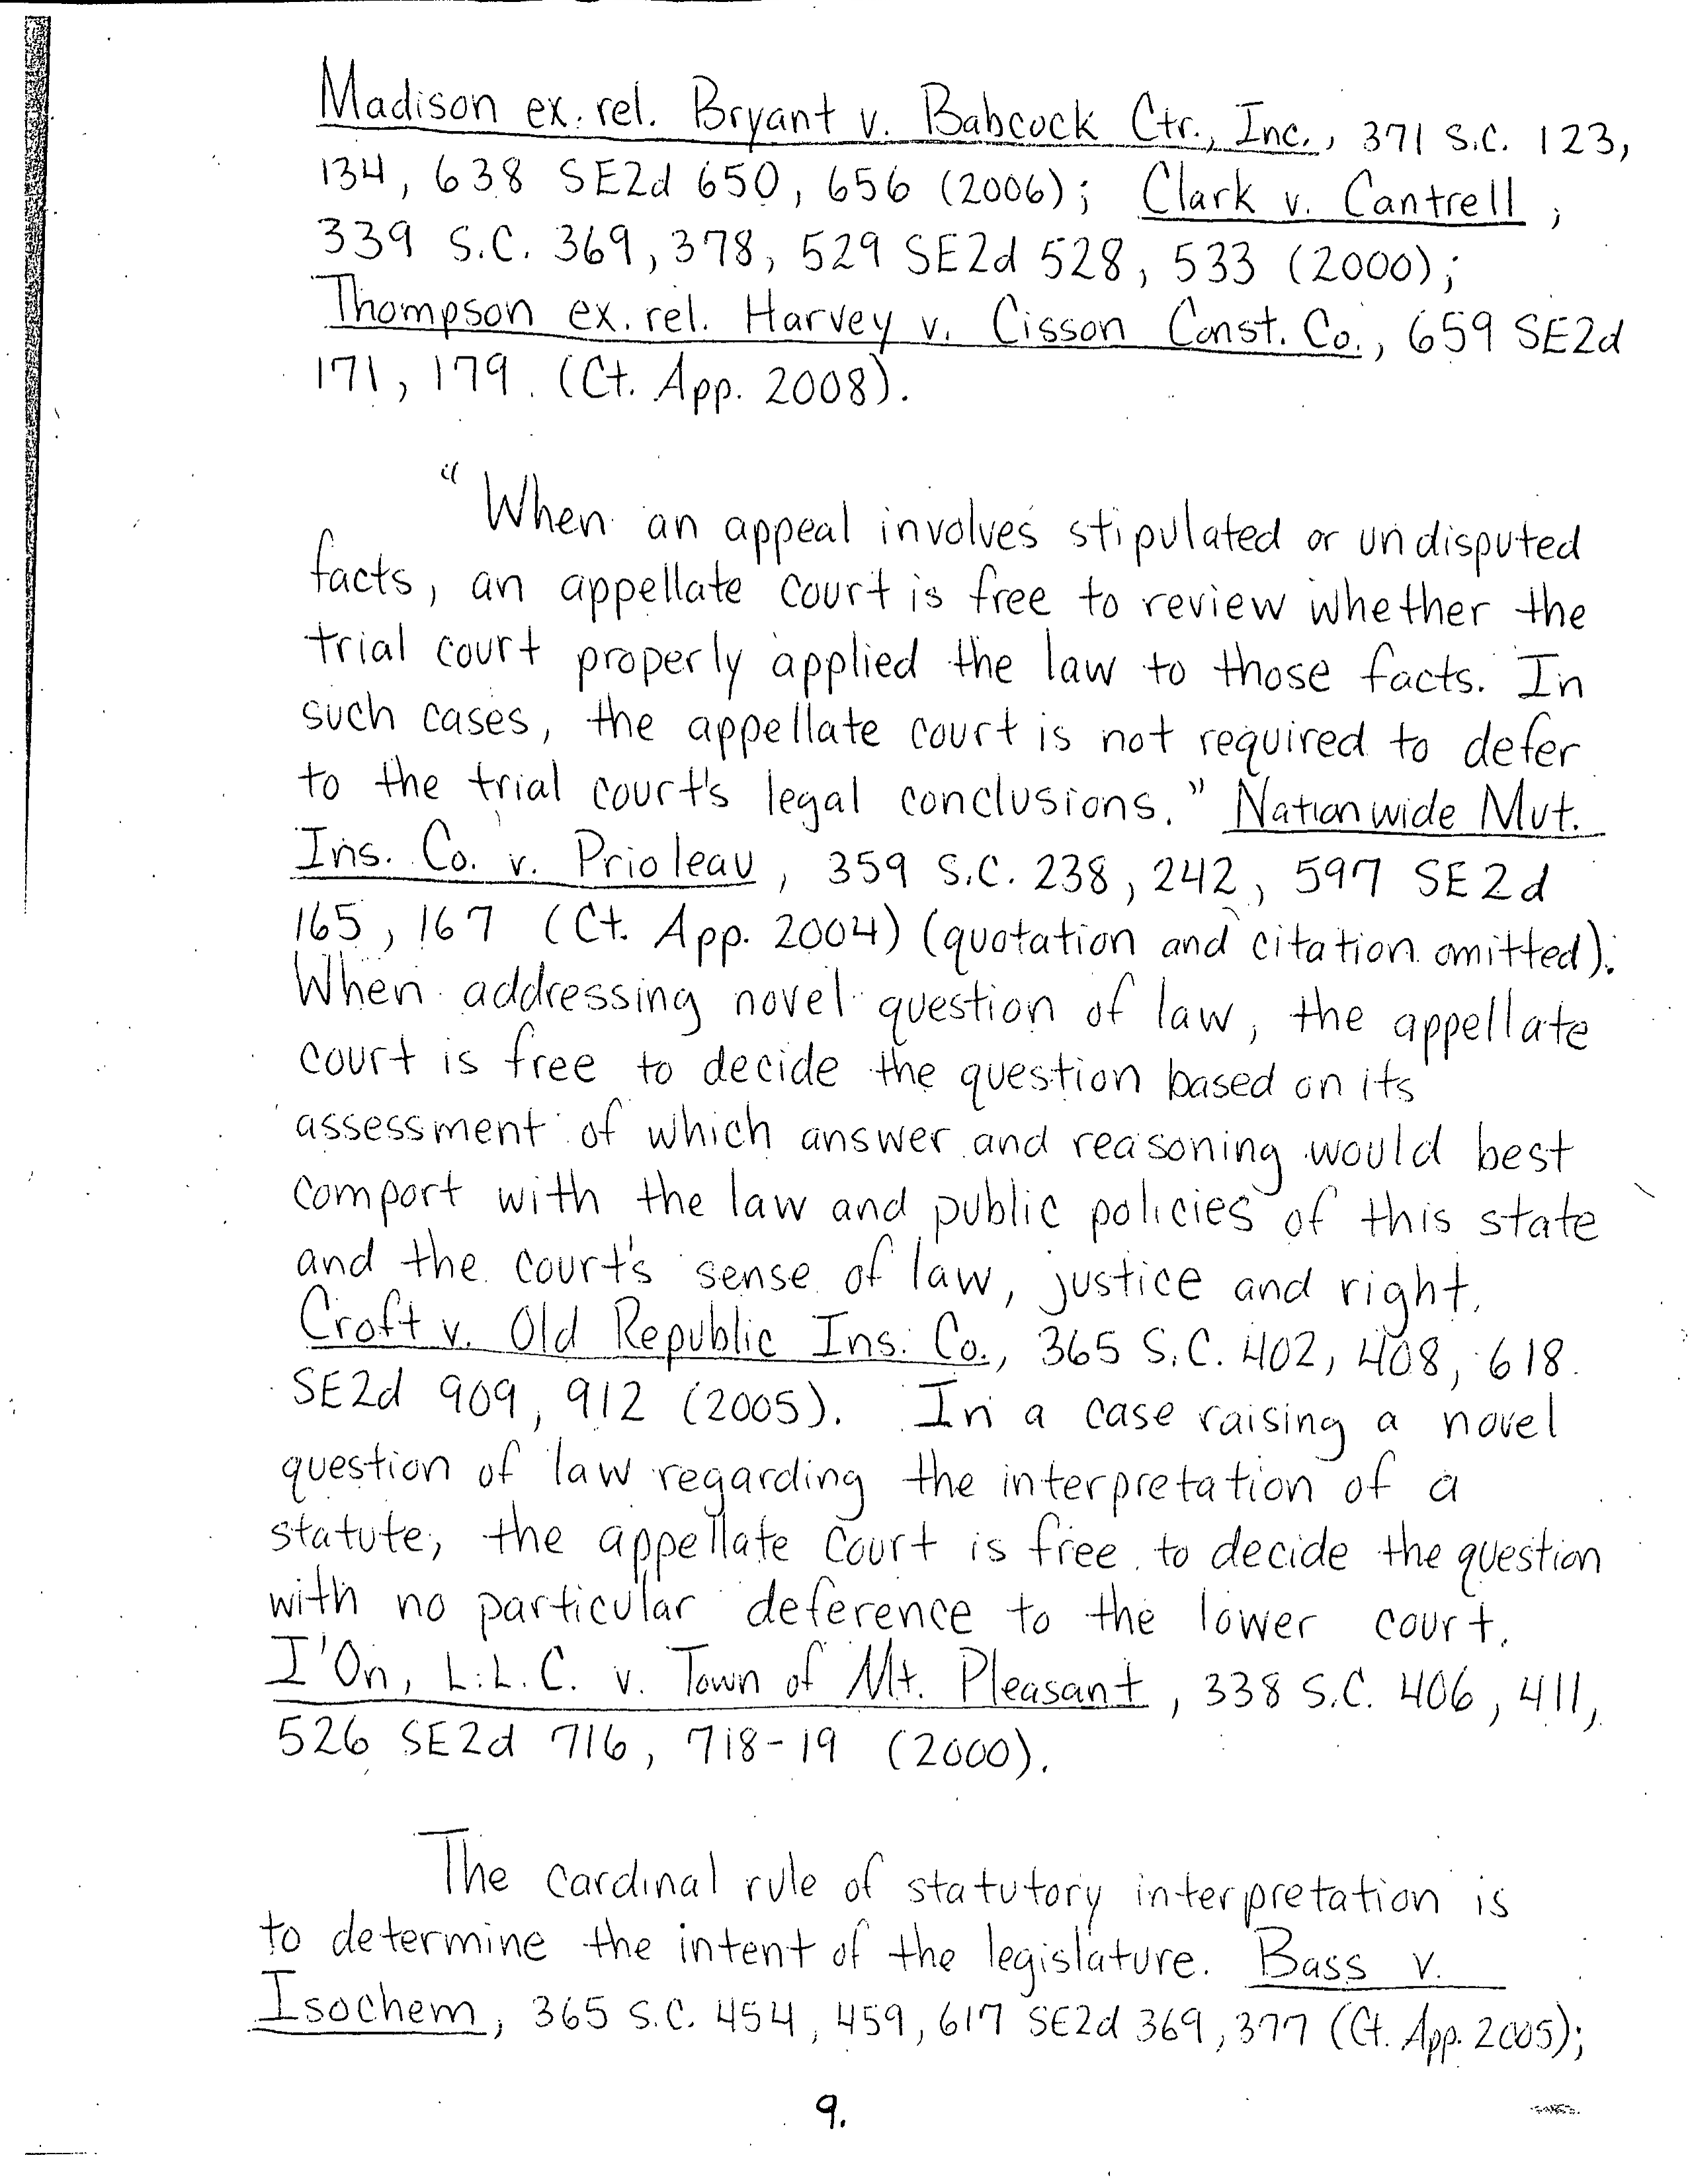 Madison ex. rel. Bryant v. Babcock Ctr., Inc., 371 S.C. 123,
134, 638 SE2d 650, 656 (2006); Clark v. Cantrell,
339 S.C. 369, 378, 529 SE2d 528, 533 (2000);
Thompson ex. rel. Harvey v. Cisson Const. Co., 659 SE2d
171, 179. (Ct. App. 2008).
"When an appeal involves stipulated or undisputed
facts, an appellate court is free to review whether the
trial court properly applied the law to those facts. In
such cases, the appellate court is not required to defer
to the trial court's legal conclusions." Nationwide Mut.
Ins. Co. v. Prioleau, 359 S.C. 238, 242, 597 SE2d
165, 167 (Ct. App. 2004) (quotation and citation omitted).
When addressing novel question of law, the appellate
court is free to decide the question based on its
assessment of which answer and reasoning would best
comport with the law and public policies of this state
and the court's sense of law, justice and right.
Croft v. Old Republic Ins. Co., 365 S.C. 402, 408, 618
SE2d 909, 912 (2005). In a case raising a novel
question of law regarding the interpretation of a
statute, the appellate court is free to decide the question
with no particular deference to the lower court.
I'On, L.L.C. v. Town of Mt. Pleasant, 338 S.C. 406, 411,
526 SE2d 716, 718-19 (2000).
The cardinal rule of statutory interpretation is
to determine the intent of the legislature. Bass v.
Isochem, 365 S.C. 454, 459, 617 SE2d 369, 377 (Ct. App. 2005);
9.